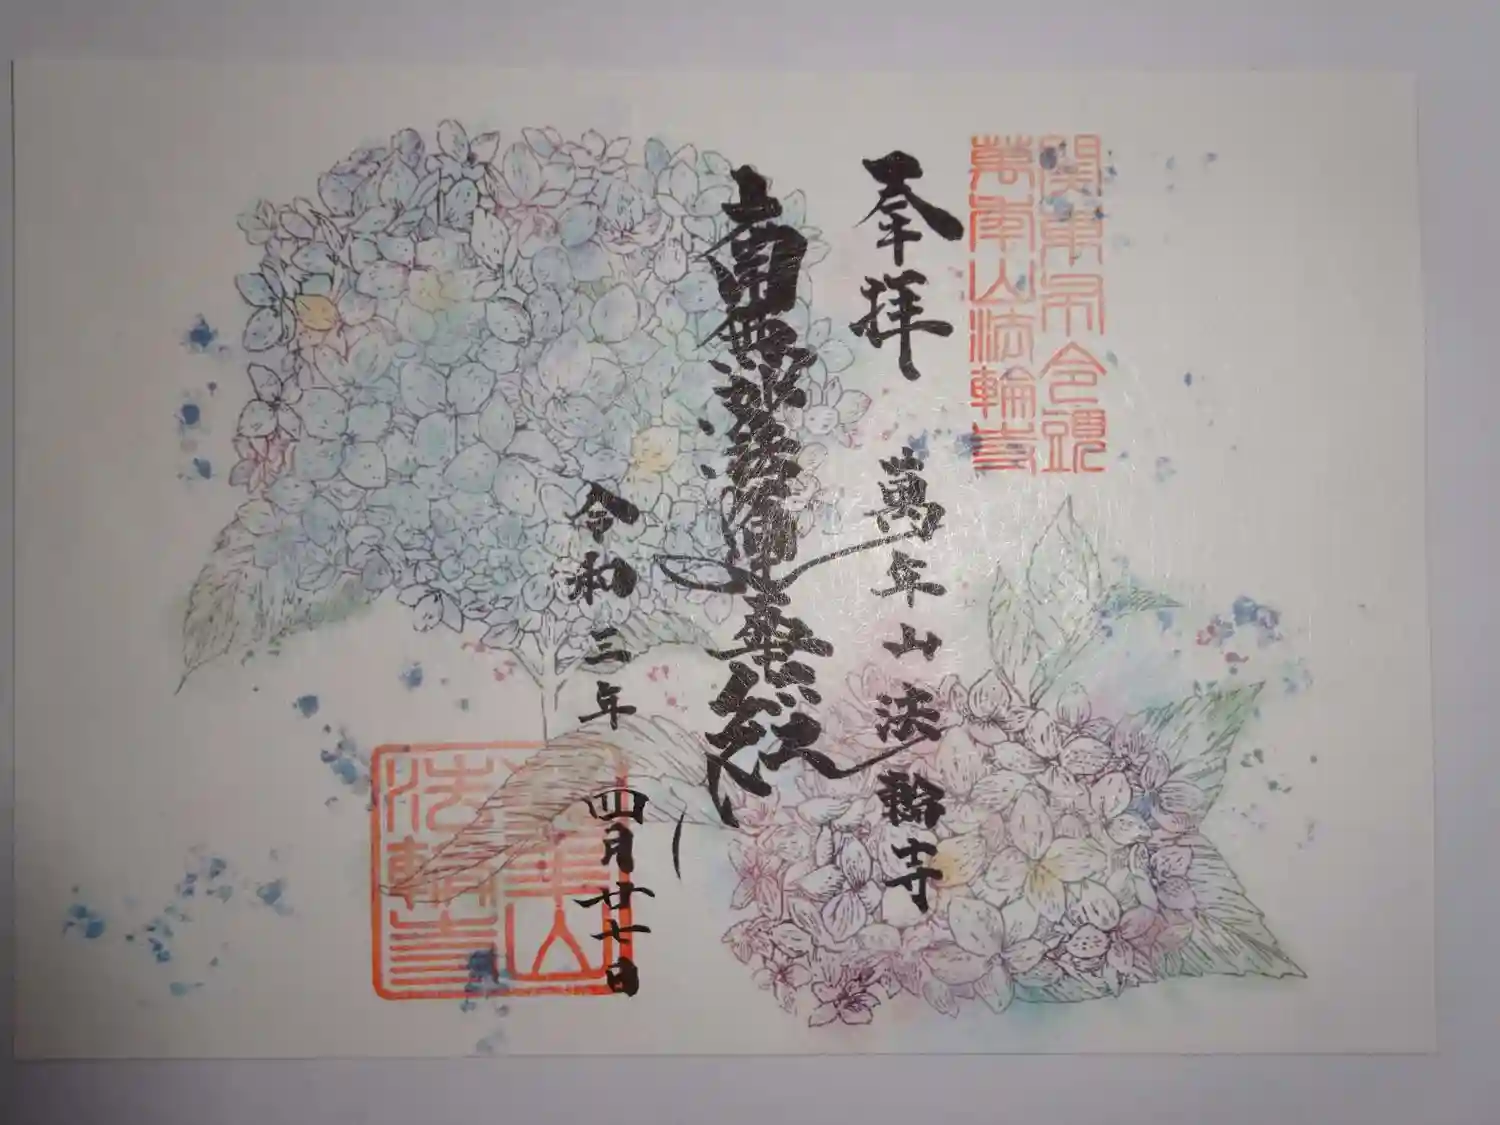 萬年山法輪寺
奉拝
萬年山法輪寺
南無妙法蓮華経
令和三年四月廿七日
萬年山
法輪寺